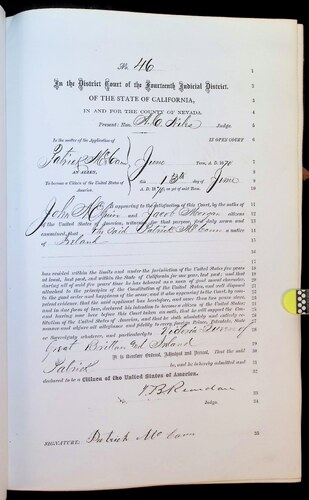 No. 46
In the District Court of the Fourteenth Judicial District,
OF THE STATE OF CALIFORNIA,
IN AND FOR THE COUNTY OF NEVADA.
Present: Hon. Judge.
In the matter of the Application of
IN OPEN COURT
Patrick McCann June Term, A.D. 1870
AN ALIEN, this 13th day of June
To become a Citizen of the United States of America. A.D. 1870
It appearing to the satisfaction of this Court, by the oaths of
John and Jacob Morgan citizens
of the United States of America, witnesses for that purpose, first duly sworn and
examined, that the said Patrick McCann a native
of Ireland
has resided within the limits and under the jurisdiction of the United States five years
at least, last past, and within the State of California for one year, last past; and that
during all of said five years' time he has behaved as a man of good moral character,
attached to the principles of the Constitution of the United States, and well disposed
to the good order and happiness of the same; and it also appearing to the Court, by competent
evidence, that the said applicant has heretofore, and more than two years since,
and in due form of law, declared his intention to become a citizen of the United States;
and having now here before this Court taken an oath, that he will support the Constitution
of the United States of America, and that he doth absolutely and entirely renounce
and abjure all allegiance and fidelity to every foreign Prince, Potentate, State
or Sovereignty whatever, and particularly to Victoria Queen of
Great Brittan and Ireland
It is therefore Ordered, Adjudged and Decreed, That the said
Patrick be, and he is hereby admitted and
declared to be a Citizen of the United States of America.
Judge.
SIGNATURE: Patrick McCann